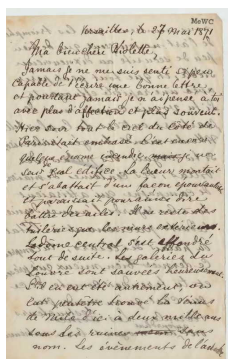 MoWC
Versailles, le 27 Mai 1871
Ma bien chère Violette
Jamais je ne me suis senti si peu
capable d'écrire une bonne lettre
et pourtant jamais je n'ai pensé à toi
avec plus d'affection et plus souvent.
Hier soir tout le ciel du côté de
Paris était embrasé. C'est encore
quelque immense incendie, je ne
sais quel édifice. La lueur montait
et s'abattait d'une façon épouvantable
et paraissait pour ainsi dire
battre des ailes. Il ne reste des
Tuileries que les murs extérieurs.
Le dôme central s'est effondré
tout de suite. Les galeries du
Louvre sont sauvées heureusement.
S'il en eut été autrement, on
eut peut-être trouvé la Vénus
de Milo d'ici à deux mille ans
sous des ruines sans
nom. Les événements de la